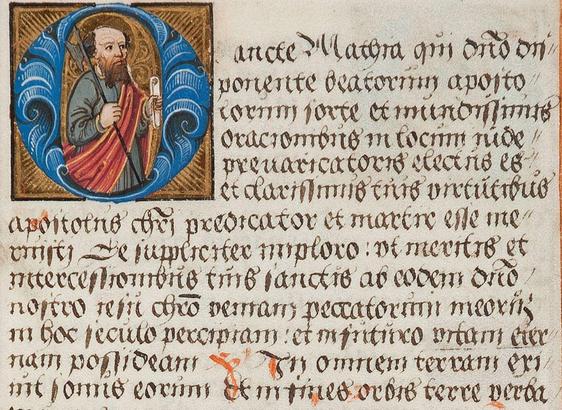 ancte Mathia qui dño dis
ponente beatorum aposto
lorum sorte et mundissimis
oracionibus in locum iude
prevaricatoris electus es
et clarissimis tuis virtutibus
apostolus chri predicator et martir esse me
ruisti Te suppliciter imploro : vt meritis et
intercessionibus tuis sanctis ab eodem dño
nostro iesu chro veniam peccatorum meorum
in hoc seculo percipiam : et in futuro vitam eter
nam possideam V In omnem terram exi
uit sonus eorum Et in fines orbis terre verba